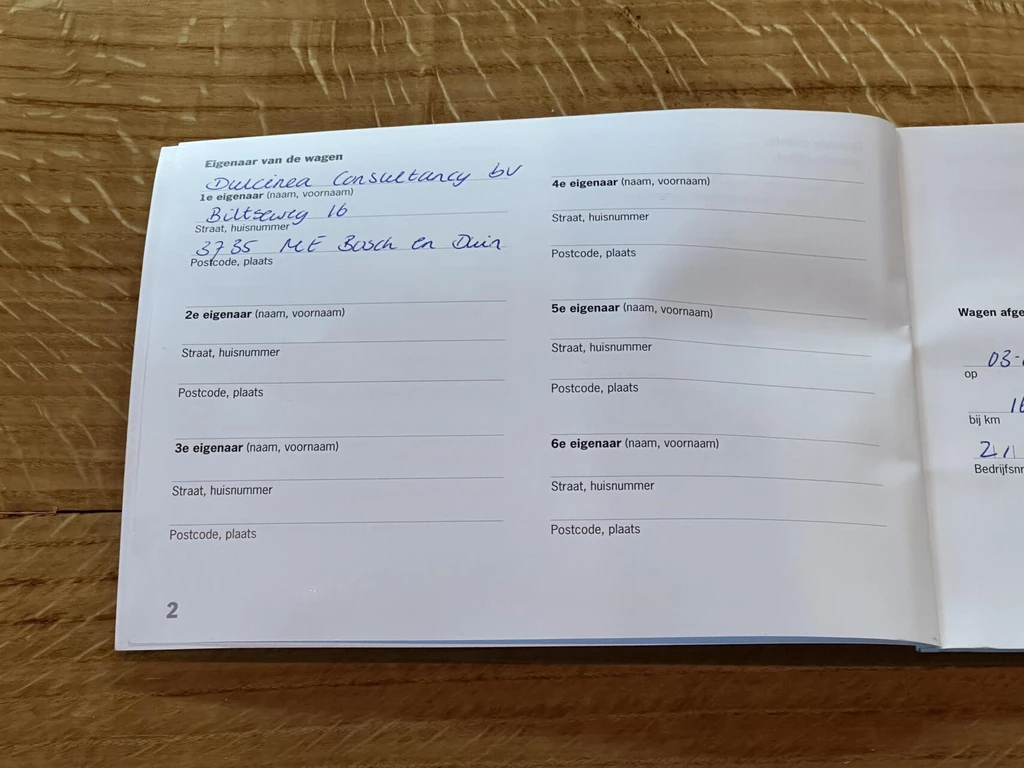 Eigenaar van de wagen
Dulcinea Consultancy bv
1e eigenaar (naam, voornaam)
Biltseweg 16
Straat, huisnummer
3735 ME Bosch en Duin
Postcode, plaats
2e eigenaar (naam, voornaam)
Straat, huisnummer
Postcode, plaats
3e eigenaar (naam, voornaam)
Straat, huisnummer
Postcode, plaats
2
4e eigenaar (naam, voornaam)
Straat, huisnummer
Postcode, plaats
5e eigenaar (naam, voornaam)
Straat, huisnummer
Postcode, plaats
6e eigenaar (naam, voornaam)
Straat, huisnummer
Postcode, plaats
Wagen afge
03-
op
bij km
Bedrijfsnr